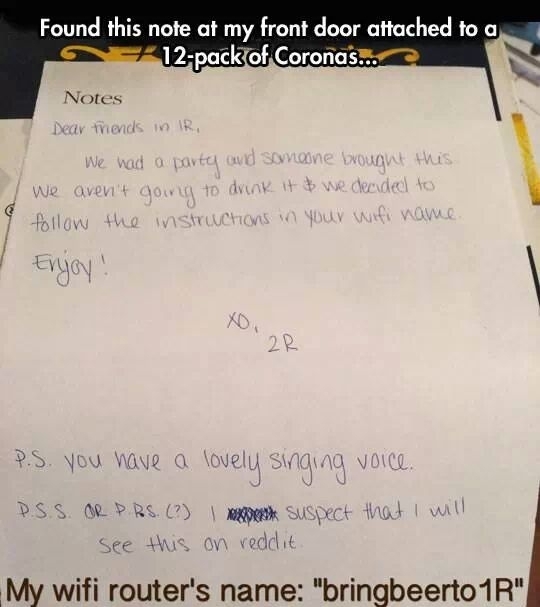 Found this note at my front door attached to a
12-pack of Coronas...
Notes
Dear friends in 1R,
We had a party and someone brought this.
We aren't going to drink it & we decided to
follow the instructions in your wifi name.
Enjoy!
XO,
2R
P.S. you have a lovely singing voice.
P.S.S. OR P.P.S. (?) I suspect that I will
see this on reddit.
My wifi router's name: "bringbeerto1R"